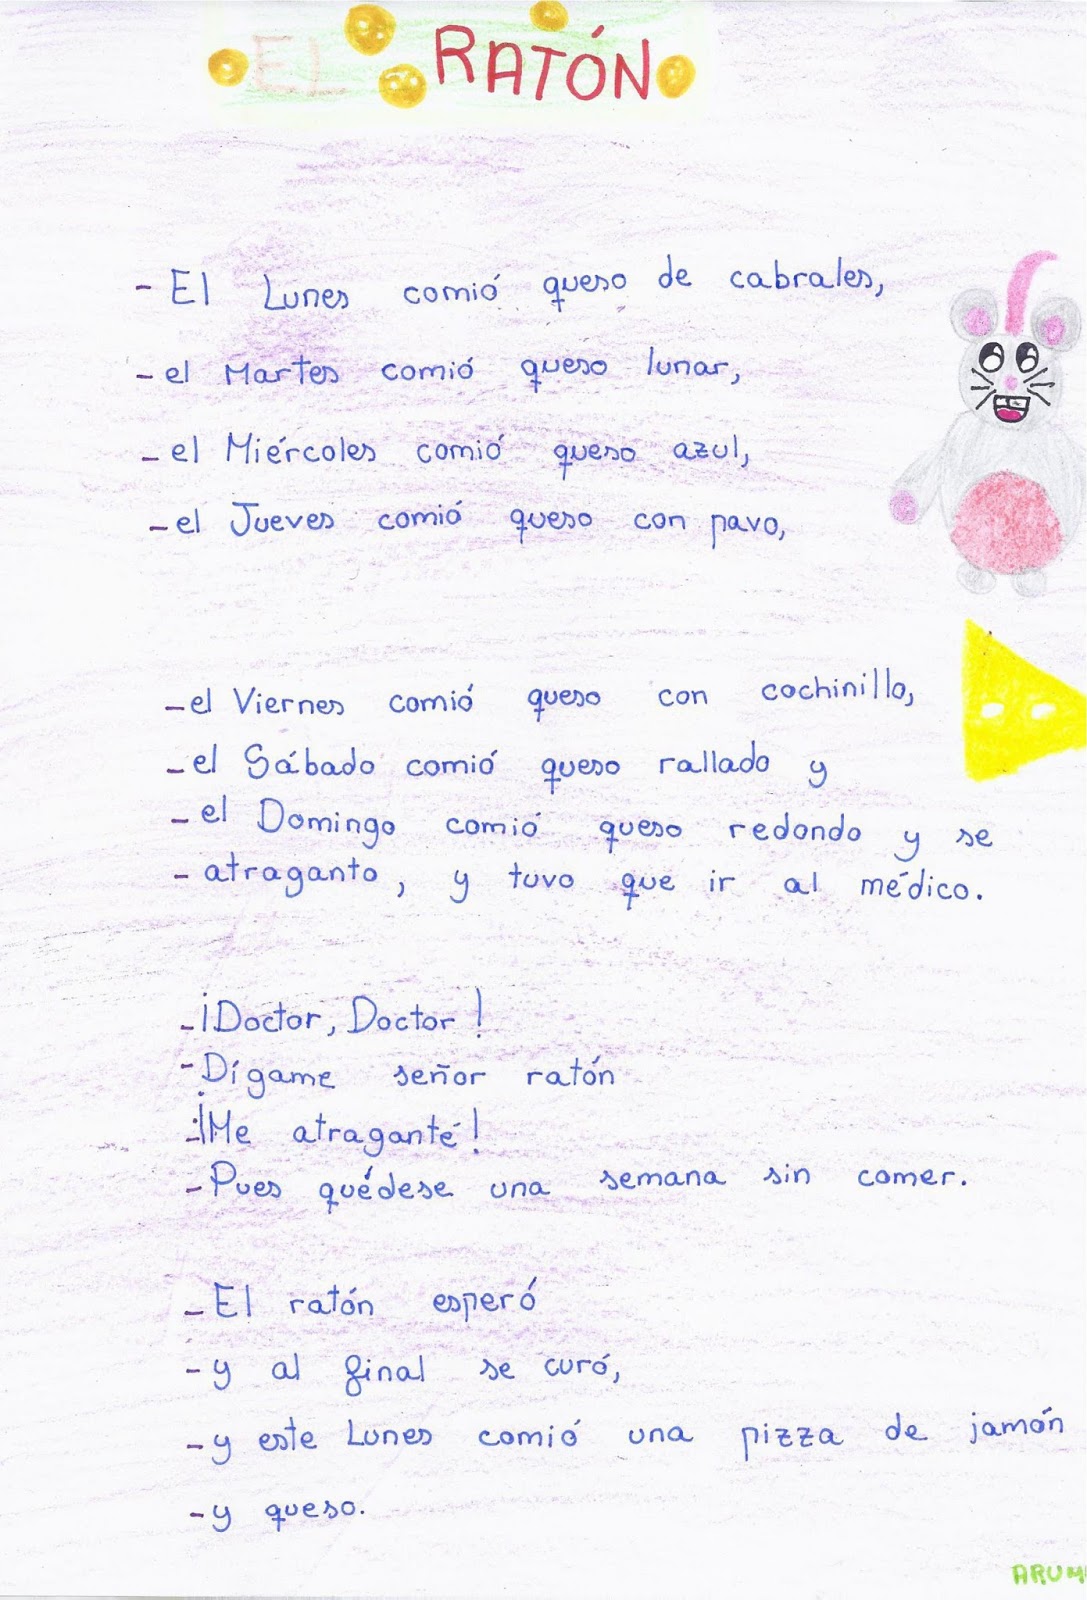 EL RATÓN
- El Lunes comió queso de cabrales,
- el Martes comió queso lunar,
- el Miércoles comió queso azul,
- el Jueves comió queso con pavo,
- el Viernes comió queso con cochinillo,
- el Sábado comió queso rallado y
- el Domingo comió queso redondo y se
- atraganto, y tuvo que ir al médico.
- ¡Doctor, Doctor!
- Dígame señor ratón
- ¡Me atraganté!
- Pues quédese una semana sin comer.
- El ratón esperó
- y al final se curó,
- y este Lunes comió una pizza de jamón
- y queso.